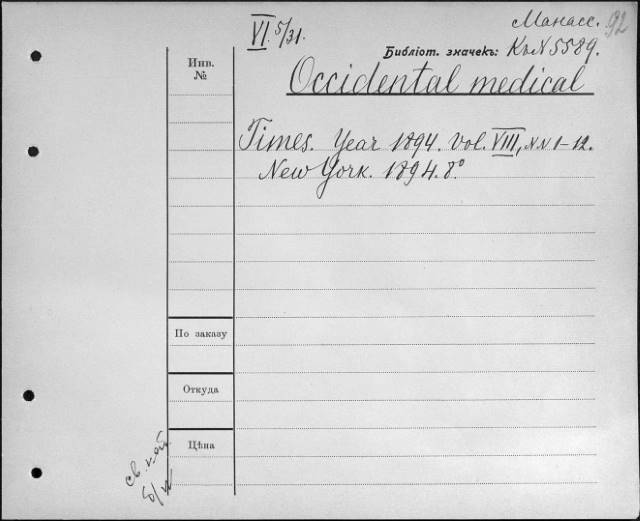 Манасс. 92
VI. 5/31.
Библіот. значекъ: К. N 5589.
Инв.
№
Occidental medical
Times. Year 1894. Vol. VIII, NN 1-12.
New York. 1894. 8.°
По заказу
Откуда
Цѣна
св. каб.
б/ц